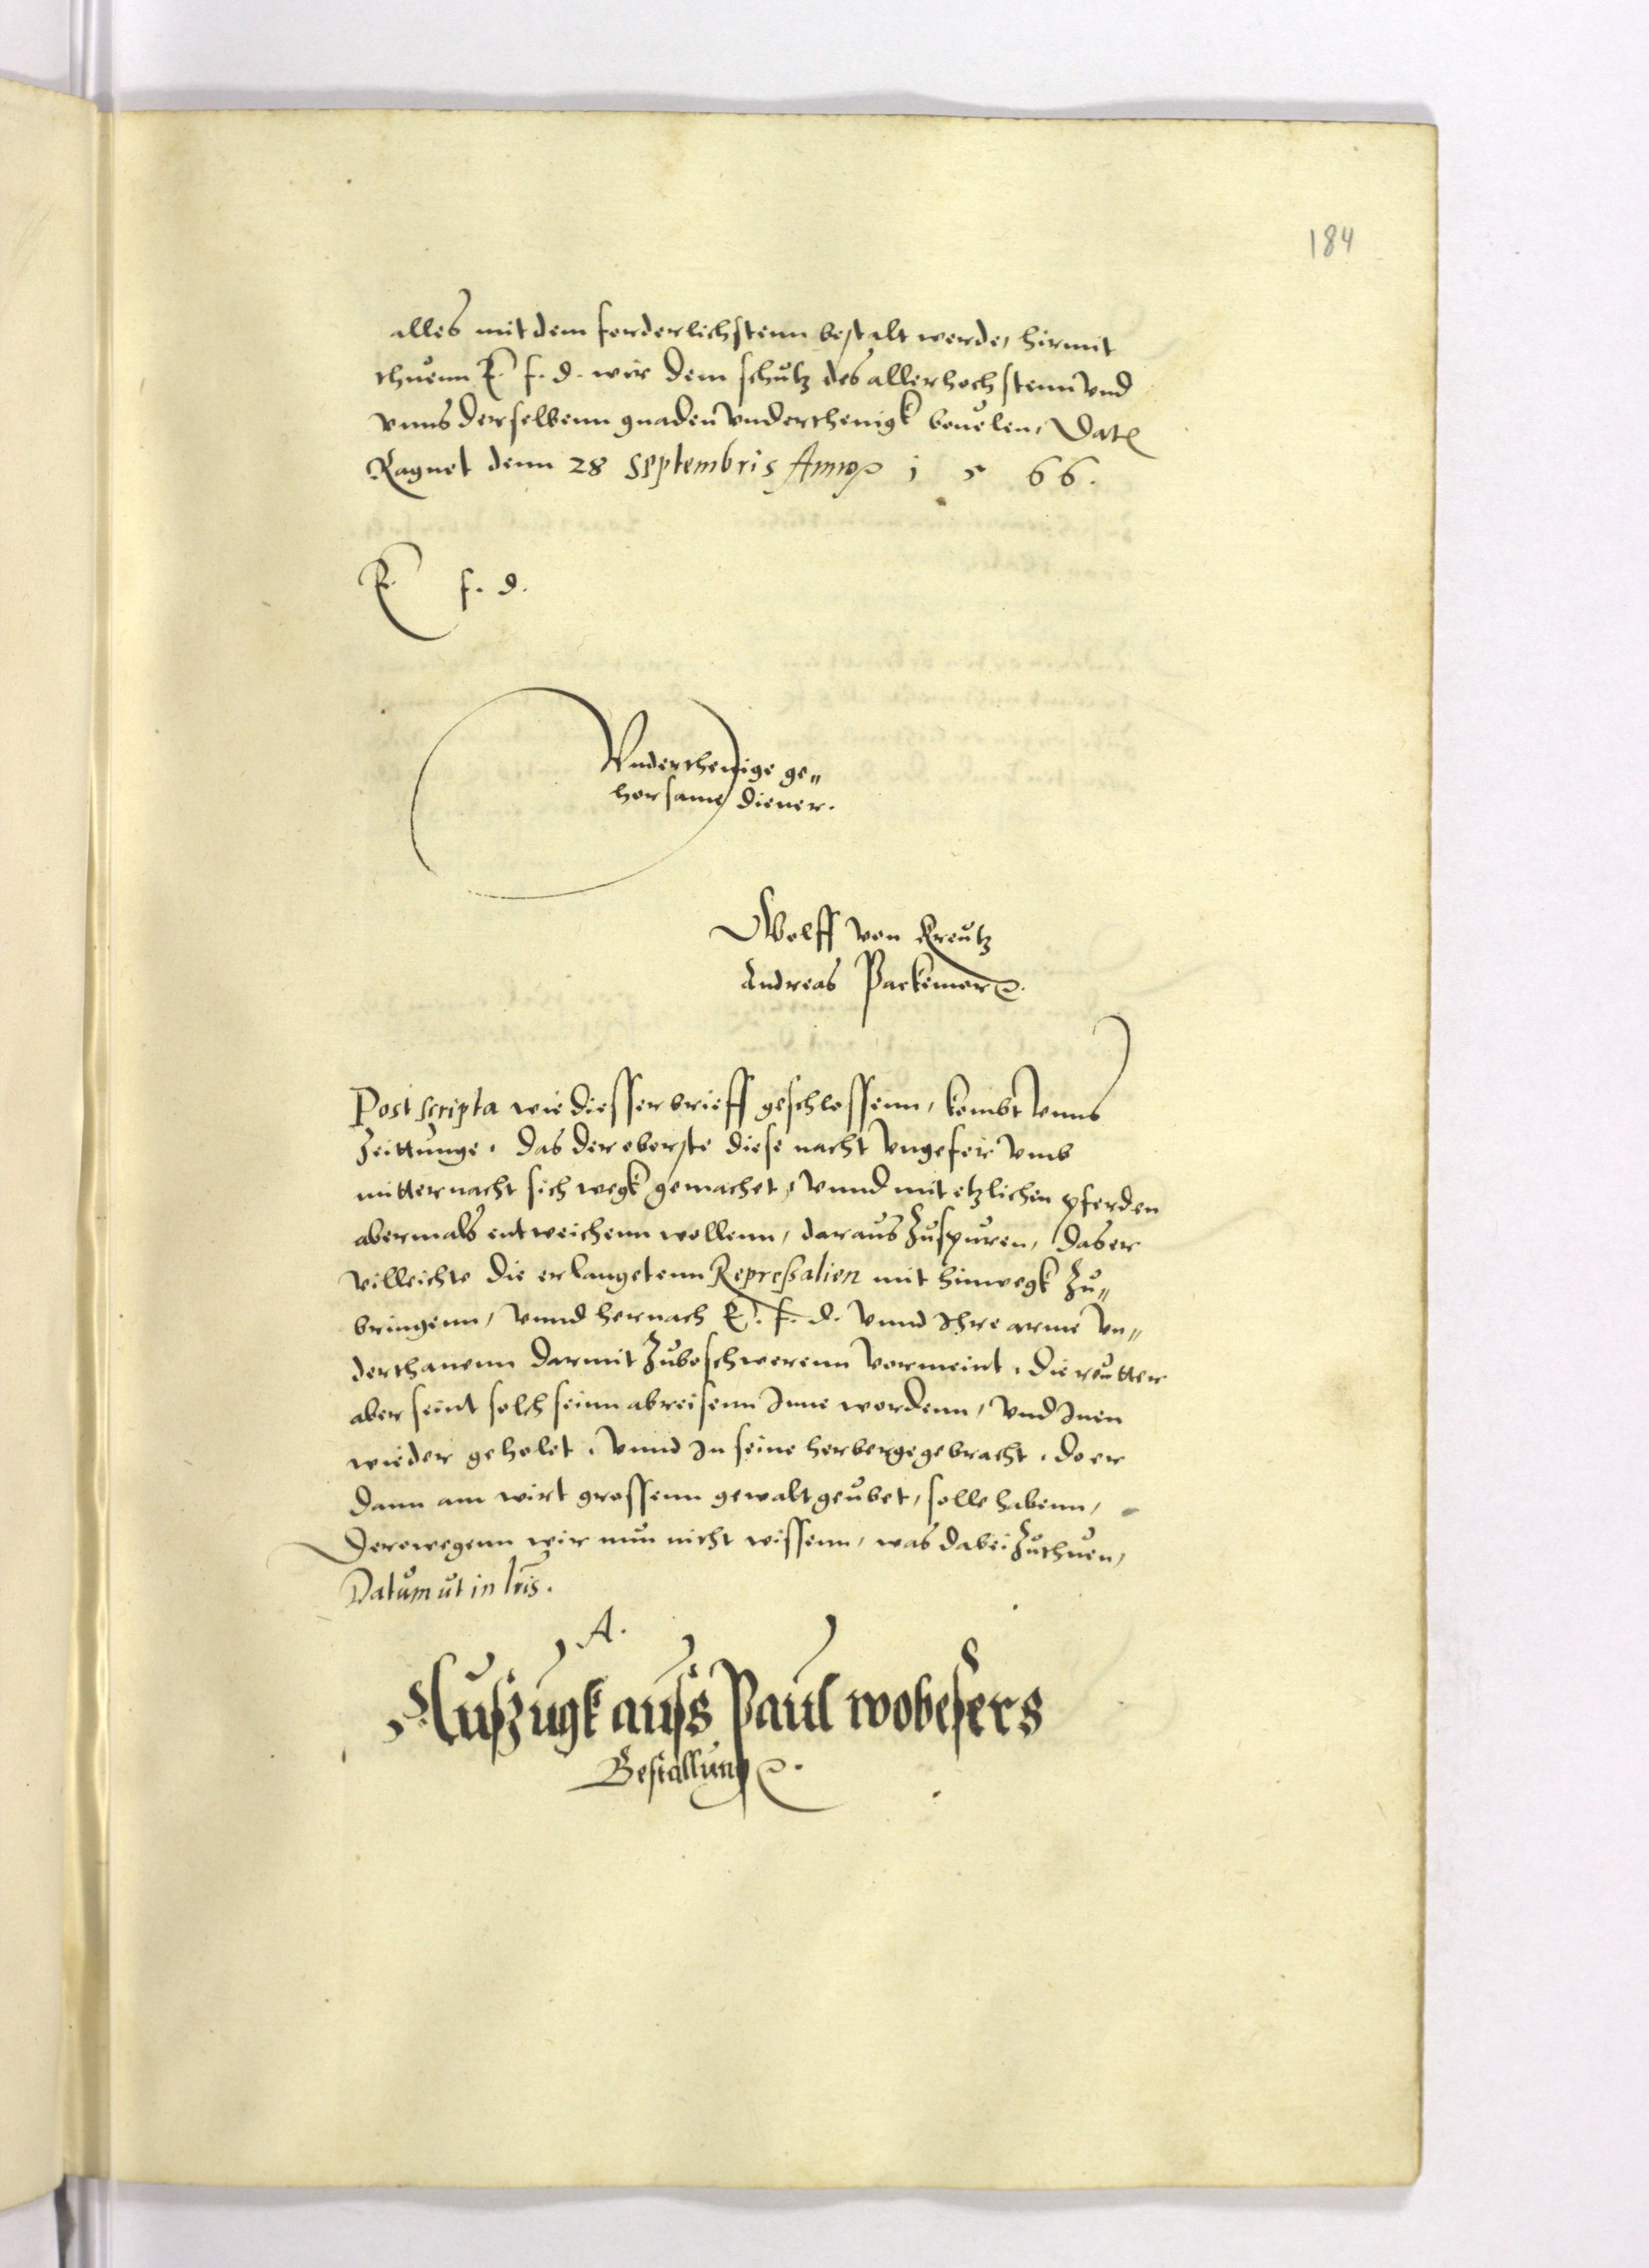 184
alles mit dem forderlichstenn bestalt werde, hirmit
thuenn E. f. d. wir dem schutz des allerhochstenn vnd
vnns derselbenn gnaden vnderthenigk beuelen, Dat
Ragnet denn 28 Septembris Anno 1 5 66.
E. f. d.
Vnderthenige ge„
horsame diener.
Wolff von Kreutz
Andreas Packemor
Post scripta wie diesser brieff geschlossenn, kombt vnns
Zeittunge. das der oberste diese nacht vngefer vmb
mitternacht sich wegk gemachet, vnnd mit etzlichen pferden
abermals entweichenn wollenn, daraus Zuspuren, das er
villeichte die erlangetenn Repreßalien mit hinwegk Zu„
bringenn, vnnd hernach E. f. d. vnnd Ihre arme vn„
derthanenn darmit Zubeschwerenn vormeint. die reutter
aber seint solch seinn abreisenn Inne wordenn, vnd Inen
wieder geholet. vnnd In seine herberge gebracht. do er
dann am wirt grossenn gewalt geubet, solle habenn,
Derowegenn wir nun nicht wissenn, was dabei Zuthuen,
Datum ut in lris.
A.
Außzugk auss Paul wobesers
Bestallung